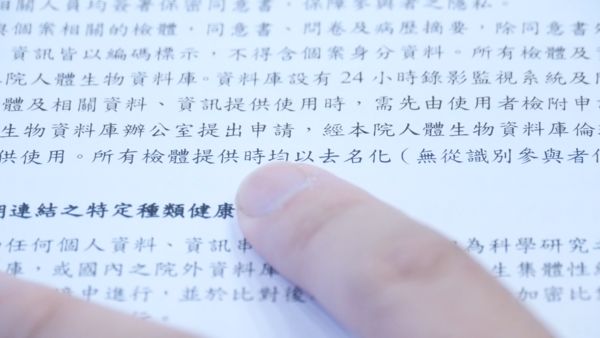 相關人員均簽署保密同意書，保障參與者之隱私。
與個案相關的檢體，同意書、問卷及病歷摘要，除同意書外
資訊皆以編碼標示，不得含個案身分資料。所有檢體及資
本院人體生物資料庫。資料庫設有24小時錄影監視系統及
體及相關資料、資訊提供使用時，需先由使用者檢附申
生物資料庫辦公室提出申請，經本院人體生物資料庫倫
供使用。所有檢體提供時均以去名化（無從識別參與者
連結之特定種類健康
任何個人資料、資訊串 為科學研究
庫，或國內之院外資料庫 生集體性
中進行，並於比對後 加密比
行。